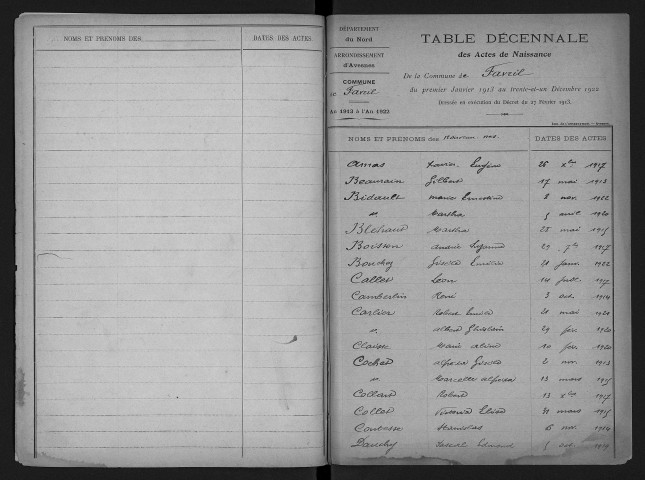 NOMS ET PRENOMS DES
DATES DES ACTES
DÉPARTEMENT
du Nord
ARRONDISSEMENT
d'Avesnes
COMMUNE
de Favril
An 1913 à l'An 1922
TABLE DÉCENNALE
des Actes de Naissance
De la Commune de Favril
du premier Janvier 1913 au trente-et-un Décembre 1922
Dressée en exécution du Décret du 27 Février 1913.
NOMS ET PRÉNOMS des Nouveau-nés
DATES DES ACTES
Amas Eugène 26 Xbre 1917
Beaurain Gilbert 17 mai 1913
Bidault Marie Ernestine 8 nov. 1922
" Martha 5 avril 1920
Bléhaud Martha 28 mai 1915
Boisson Andrée Suzanne 29 7bre 1917
Bouchez Gisèle 21 janv. 1922
Callet Léon 14 juil. 1917
Camberlin René 3 oct. 1914
Carlier Robert Emile 21 mai 1921
" Albert Ghislain 29 fév. 1920
Claisse Marie 10 fév. 1920
Cochet Gisèle 2 nov. 1913
" Marcelle 13 mars 1915
Collard Robert 13 Xbre 1917
Collet Victoria Elisa 31 mars 1915
Contesse Stanislas 6 nov. 1914
Dauchy Edmond 1 oct.